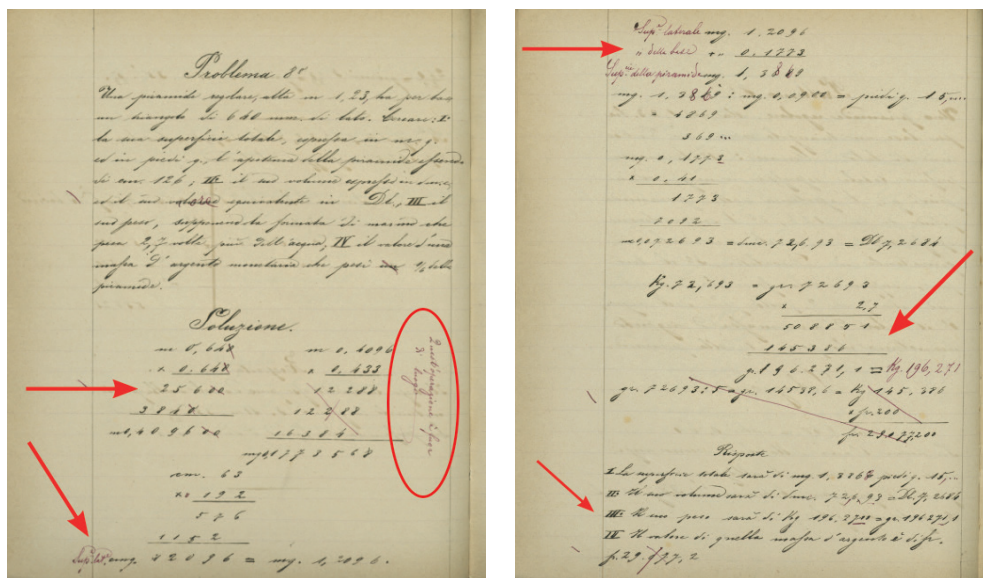 Problema 8°
Una piramide regolare, alta m 1,23, ha per base
un triangolo di 640 mm. di lato. Cercare: I°
la sua superficie totale, espressa in m. q.
ed in piedi q., l'apotema della piramide essendo
di cm. 126; II° il suo volume espresso in dmc.
ed il suo equivalente in Dl., III il
suo peso, supponendola formata di marmo che
pesa 2,7 volte più dell'acqua; IV il valore d'una
massa d'argento monetaria che pesi 1/5 della
piramide.
Soluzione.
m 0,640
x 0,640
25600
3840
0,409600
m 0,4096
x 0,433
12288
12288
16384
mq 0,1773568
Quest'operazione si fuga
cm. 63
x 192
576
1152
Sup. lat. cmq. 12096 = mq. 1,2096.
Sup. laterale mq. 1,2096
" della base + " 0,1773
Sup. della piramide mq. 1,3869
mq. 1,3869 : mq. 0,0900 = piedi q. 15,...
4869
369
mq. 0,1773
x 0,41
1773
7092
mc 0,072693 = dmc. 72,693 = Dl 7,2684
Kg. 72,693 = gr. 72693
x 2,7
508851
145386
g. 196.271,1 = Kg. 196,271
gr. 72693:5 = gr. 14538,6 = Kg 145,386
x fr. 200
fr. 29.077,200
Risposte
I. La superficie totale sarà di mq. 1,3869 piedi q. 15,-
II Il suo volume sarà di dmc. 72,693 = Dl. 7,2684
III Il suo peso sarà di Kg 196,2711 = gr. 196271,1
IV Il valore di quella massa d'argento è di fr.
f. 29.077,2